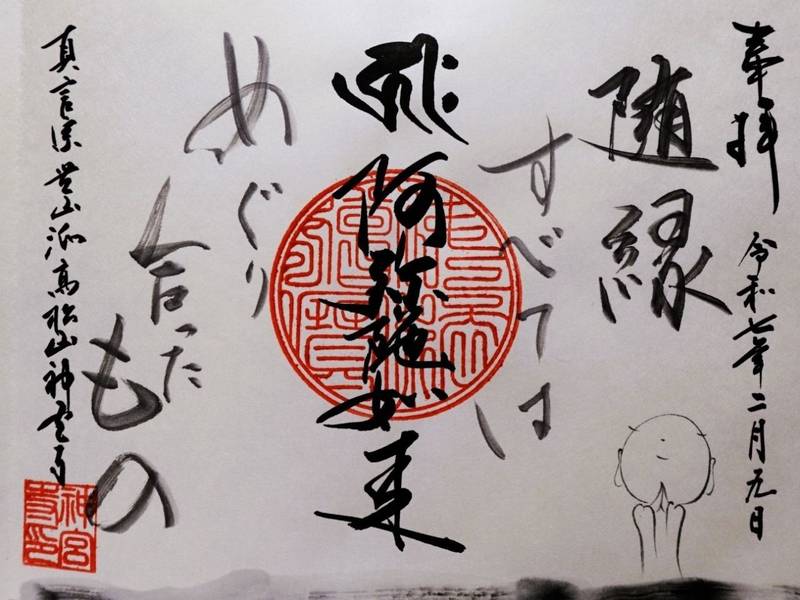 奉拝 令和七年二月元日
随縁
すべては
阿弥陀如来
めぐり
合った
もの
真言宗豊山派高松山神宮寺
神宮寺印